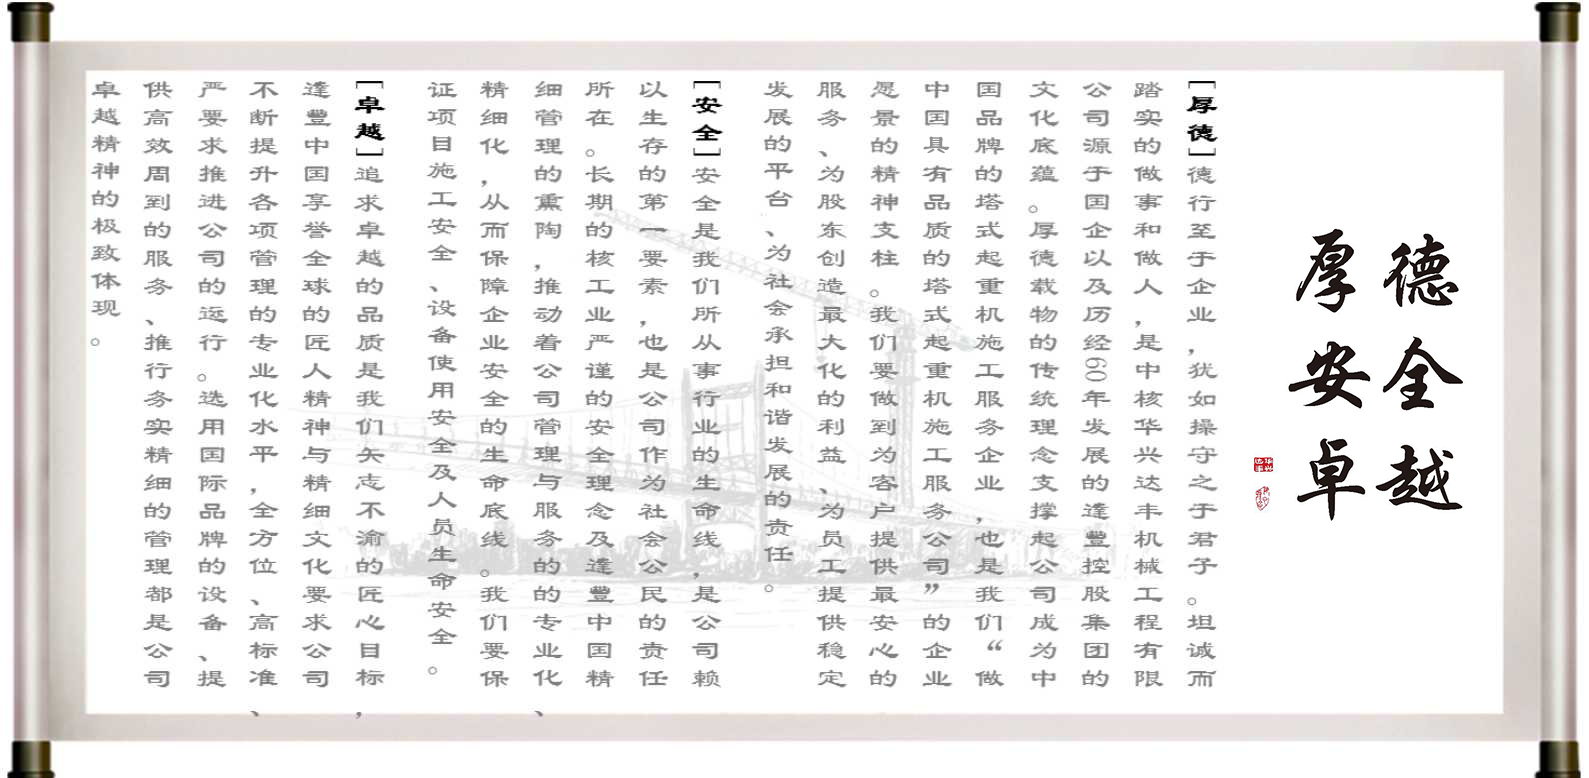 厚德
安全
卓越
[厚德]德行至于企业，犹如操守之于君子。坦诚而
踏实的做事和做人，是中核华兴达丰机械工程有限
公司源于国企以及历经60年发展的達豐控股集团的
文化底蕴。厚德载物的传统理念支撑起公司成为中
国品牌的塔式起重机施工服务企业，也是我们“做
中国具有品质的塔式起重机施工服务公司”的企业
愿景的精神支柱。我们要做到为客户提供最安心的
服务、为股东创造最大化的利益、为员工提供稳定
发展的平台、为社会承担和谐发展的责任。
[安全]安全是我们所从事行业的生命线，是公司赖
以生存的第一要素，也是公司作为社会公民的责任
所在。长期的核工业严谨的安全理念及達豐中国精
细管理的熏陶，推动着公司管理与服务的的专业化、
精细化，从而保障企业安全的生命底线。我们要保
证项目施工安全、设备使用安全及人员生命安全。
[卓越]追求卓越的品质是我们矢志不渝的匠心目标，
達豐中国享誉全球的匠人精神与精细文化要求公司
不断提升各项管理的专业化水平，全方位、高标准、
严要求推进公司的运行。选用国际品牌的设备、提
供高效周到的服务、推行务实精细的管理都是公司
卓越精神的极致体现。